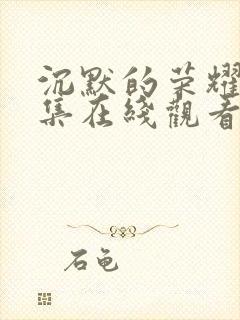 沉默的荣耀
集在綫觀看
石龟